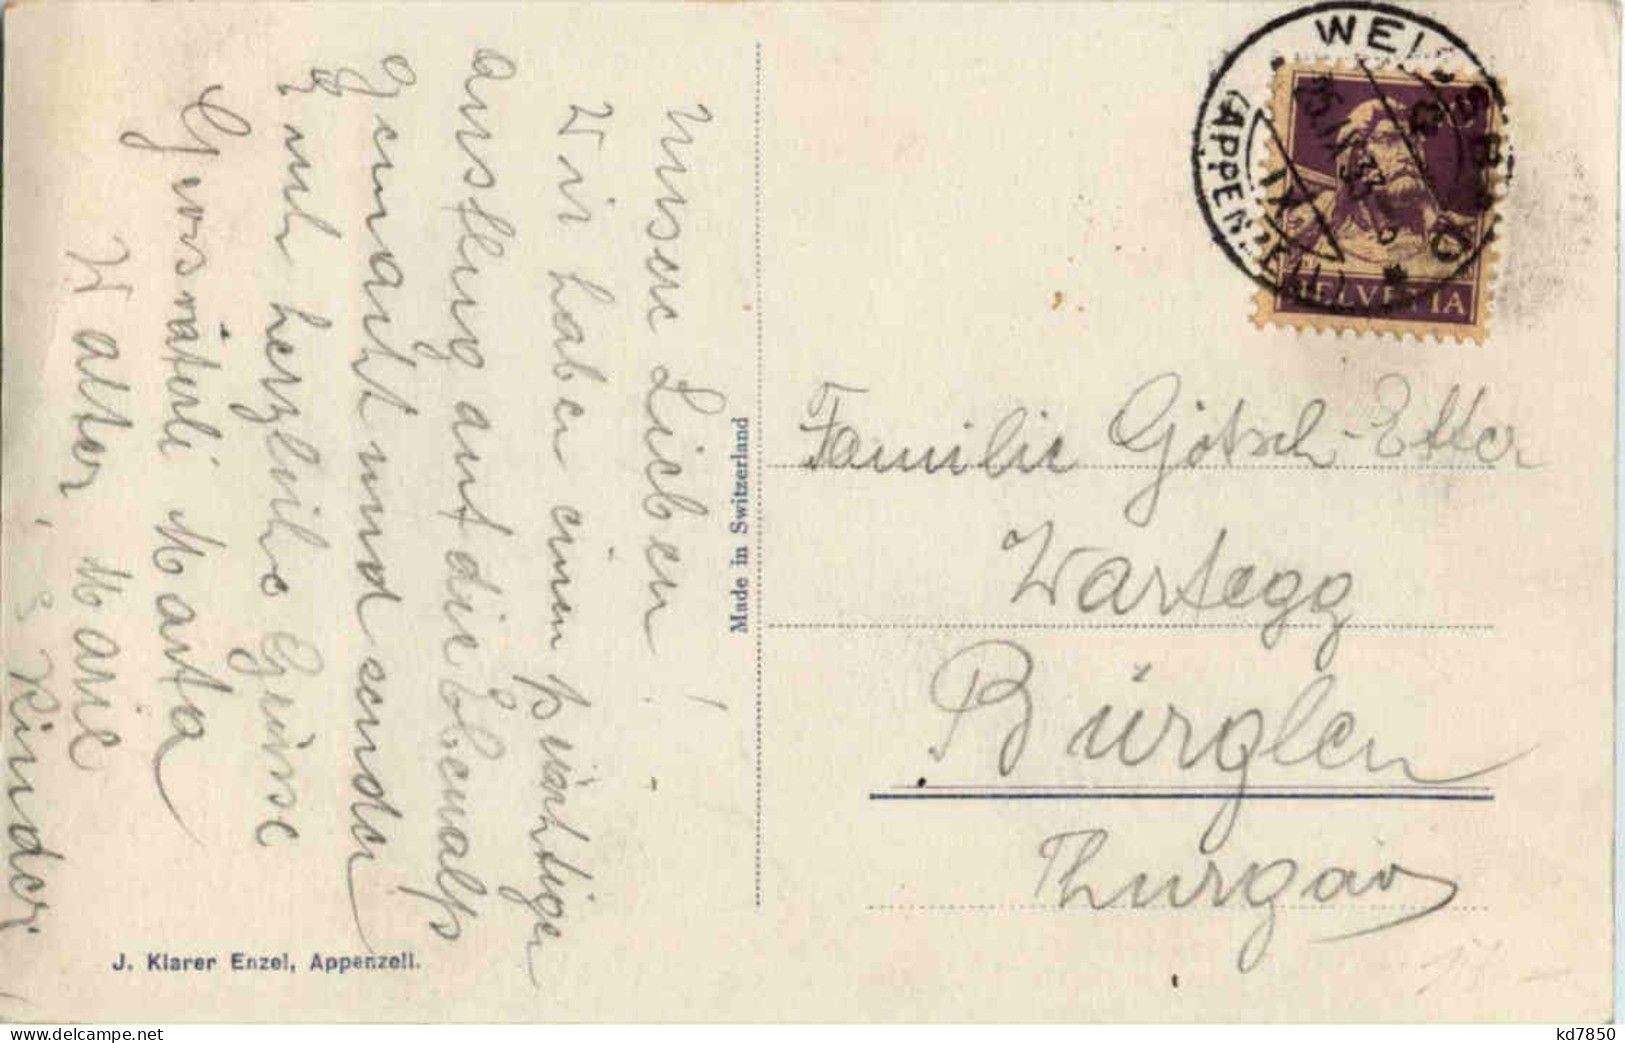 Unsere Lieben!
Wir haben einen prächtigen
Ausflug auf die Ebenalp
gemacht und senden
Euch herzliche Grüsse
Grossmüterli Marta
Walter, Marie
& Kinder.
Made in Switzerland
J. Klarer Enzel, Appenzell.
(APPENZELL)
HELVETIA
Familie Götsch-Etter
Wartegg
Bürglen
Thurgau
kd7850